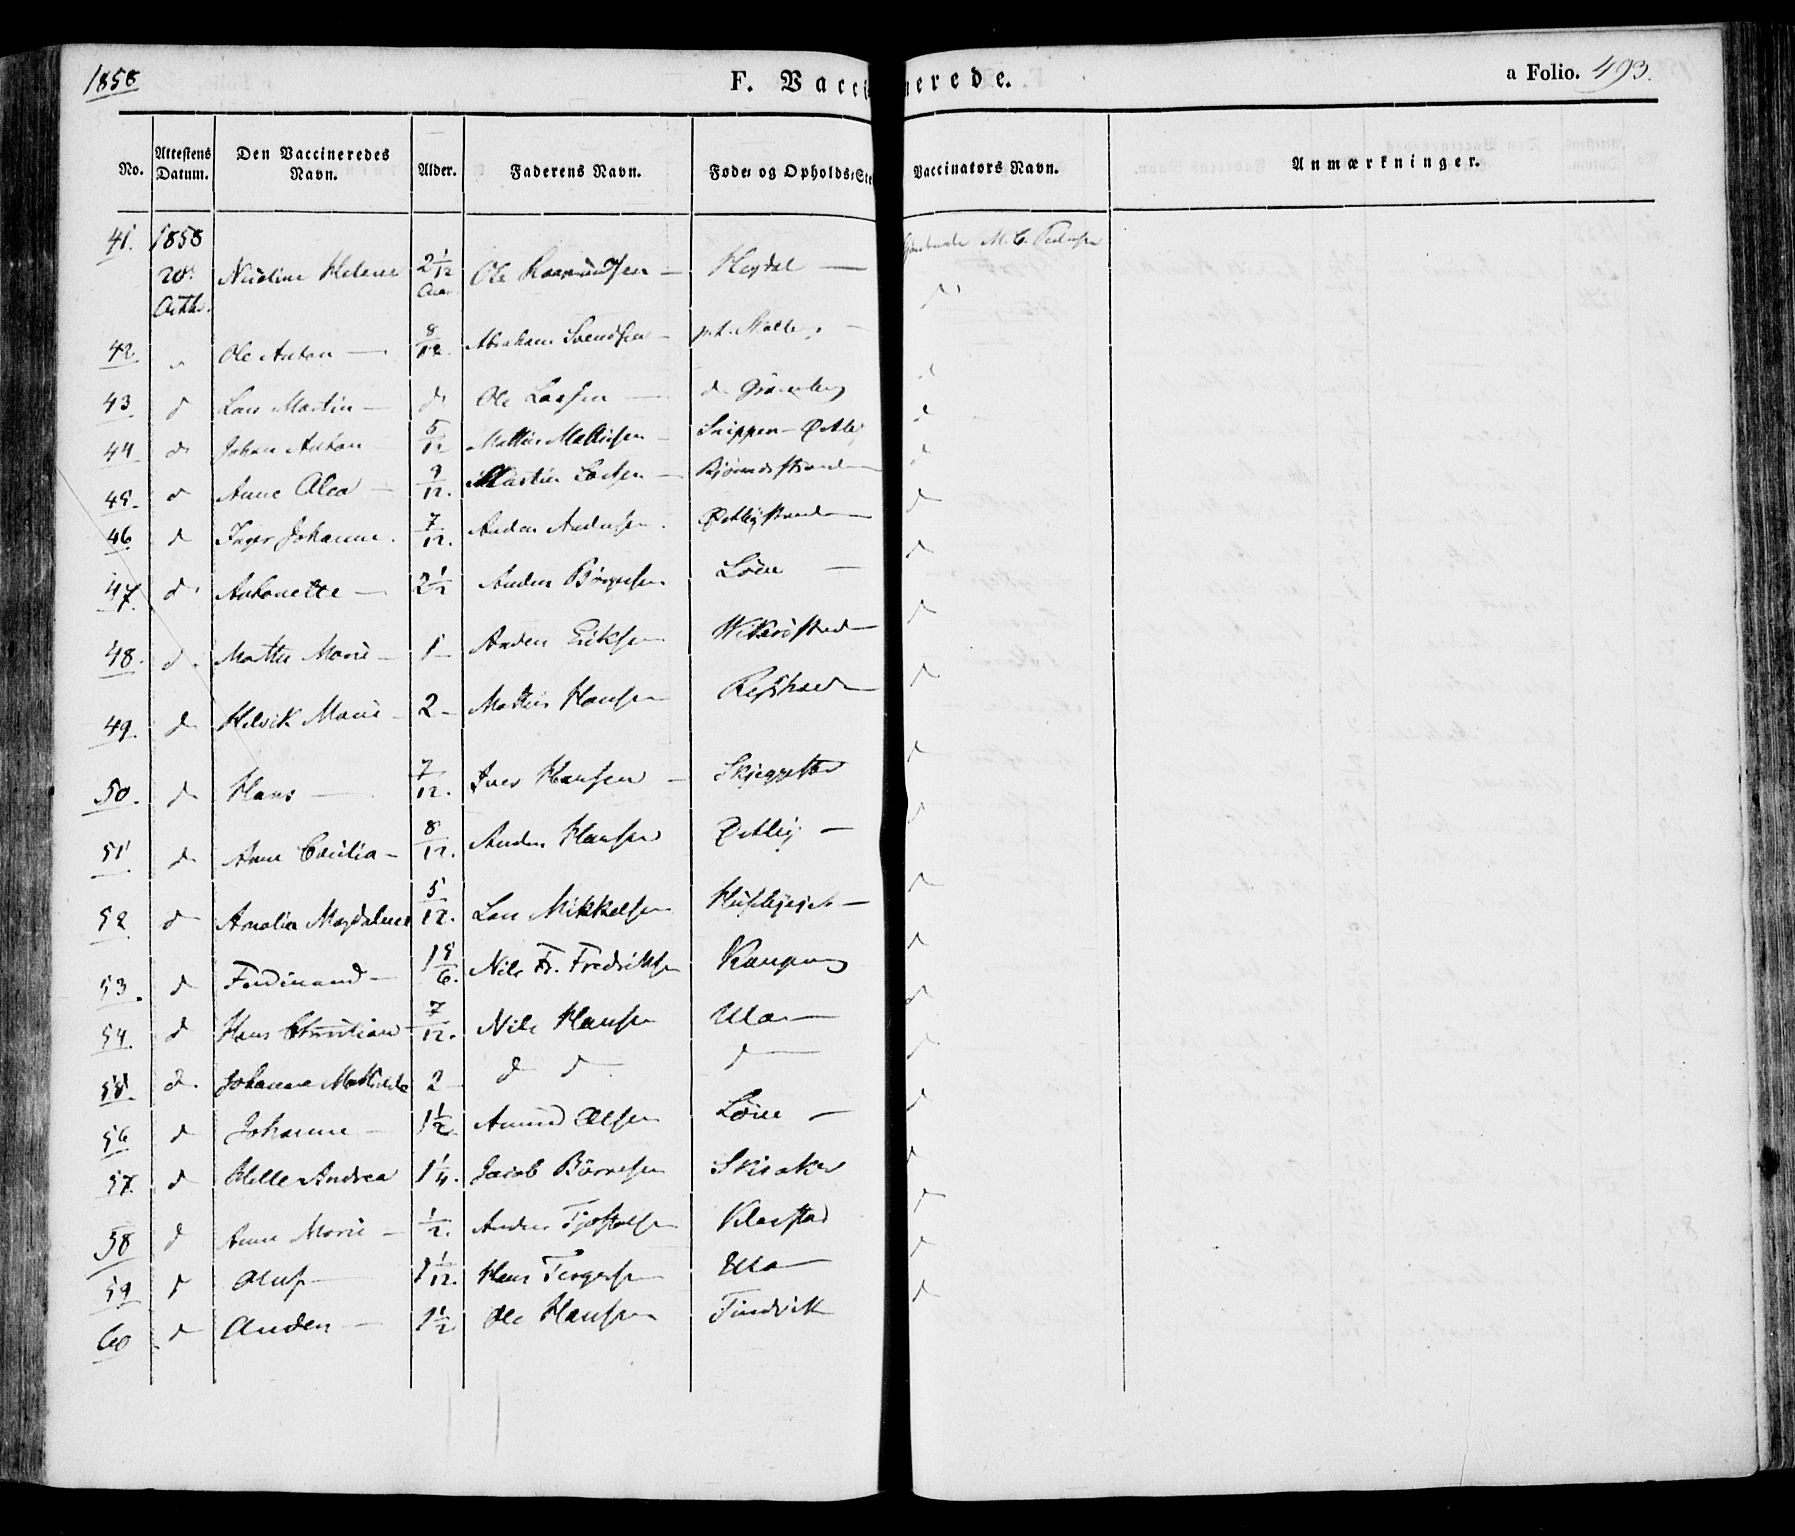 1858
F. Vaccinerede.
a Folio. 493.
No. Attestens Datum. Den Vaccineredes Navn. Alder. Faderens Navn. Føde- og Opholds-Ste Vaccinators Navn. Anmærkninger.
41. 1858 28. Octbr. Nicoline Helene 2 1/12 Aar Ole Rasmussen — Heydal — M. C. Pedersen
42. " Ole Anton — 8/12 Abraham Svendsen — d
43. d Lars Martin — d Ole Larsen — d
44. d Johan Anton 5/12 Mathis Mathisen — Snippen — Østby d
45. d Anne Olea — 9/12. Martin Larsen — Bjønnesstrand d
46 d Inger Johanne. 7/12. Anders Andersen. Østbystrand — d
47. d. Antonette — 2 1/2 Anders Børgesen Löve — d
48. d. Mathe Marie — 1 — Anders Eriksen — d
49. d Helvik Marie — 2 — Mathis Hansen d
50. d Hans — 7/12. Iver Hansen — d
51. d Anne Cecilia — 8/12. Anders Hansen Østby — d
52 d Amalia Magdalene 5/12. Lars Mikkelsen d
53. d Ferdinand — 1 5/6. Nils Fr. Fredriksen Kaupang d
54. d Hans Christian 7/12. Nils Hansen Ula — d
55. d. Johanne Mathilde 2 d d d — d
56 d Johanne — 1 1/2 Amund Olsen Löve — d
57. d Helle Andrea 1 1/4. Jacob Börresen Skisaker d
58 d Anne Marie — 1/2. Anders Tjostolsen Klaastad d
59 d Oluf — 1 1/12. Hans Torgersen Ula — d
60 d Anders — 1 1/2 Ole Hansen Tindvik d